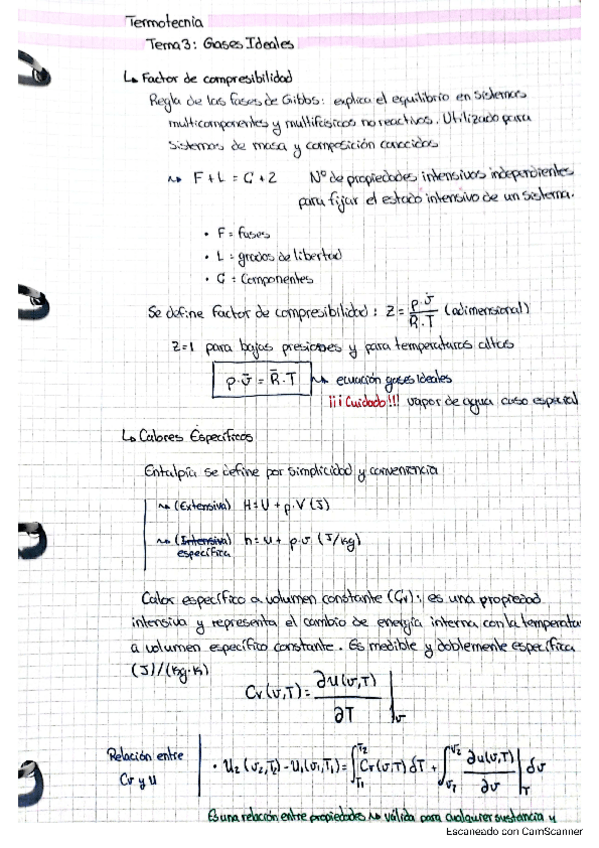 Termotecnia
Tema 3: Gases Ideales
↳ Factor de compresibilidad
Regla de las fases de Gibbs: explica el equilibrio en sistemas
multicomponentes y multifásicos no reactivos. Utilizado para
sistemas de masa y composición conocidas
↝ F + L = C + 2   Nº de propiedades intensivas independientes
para fijar el estado intensivo de un sistema.
• F = fases
• L = grados de libertad
• C = Componentes
Se define Factor de compresibilidad: Z = p·v̄ / R̄·T (adimensional)
Z=1 para bajas presiones y para temperaturas altas
p·v̄ = R̄·T ↝ ecuación gases Ideales
¡¡¡Cuidado!!! vapor de agua caso especial
↳ Calores Específicos
Entalpía se define por simplicidad y conveniencia
↝ (Extensiva) H = U + p·V (J)
↝ (Intensiva) h = u + p·v (J/kg)
específica
Calor específico a volumen constante (Cv): es una propiedad
intensiva y representa el cambio de energía interna con la temperatu
a volumen específico constante. Es medible y doblemente específica
(J)/(kg·K)
Cv(v,T) = ∂u(v,T) / ∂T |v
Relación entre
Cv y u
• u₂(v₂,T₂) - u₁(v₁,T₁) = ∫T₁T₂ Cv(v,T) δT + ∫v₁v₂ ∂u(v,T) / ∂v |T δv
Es una relación entre propiedades ↝ válida para cualquier sustancia y
Escaneado con CamScanner